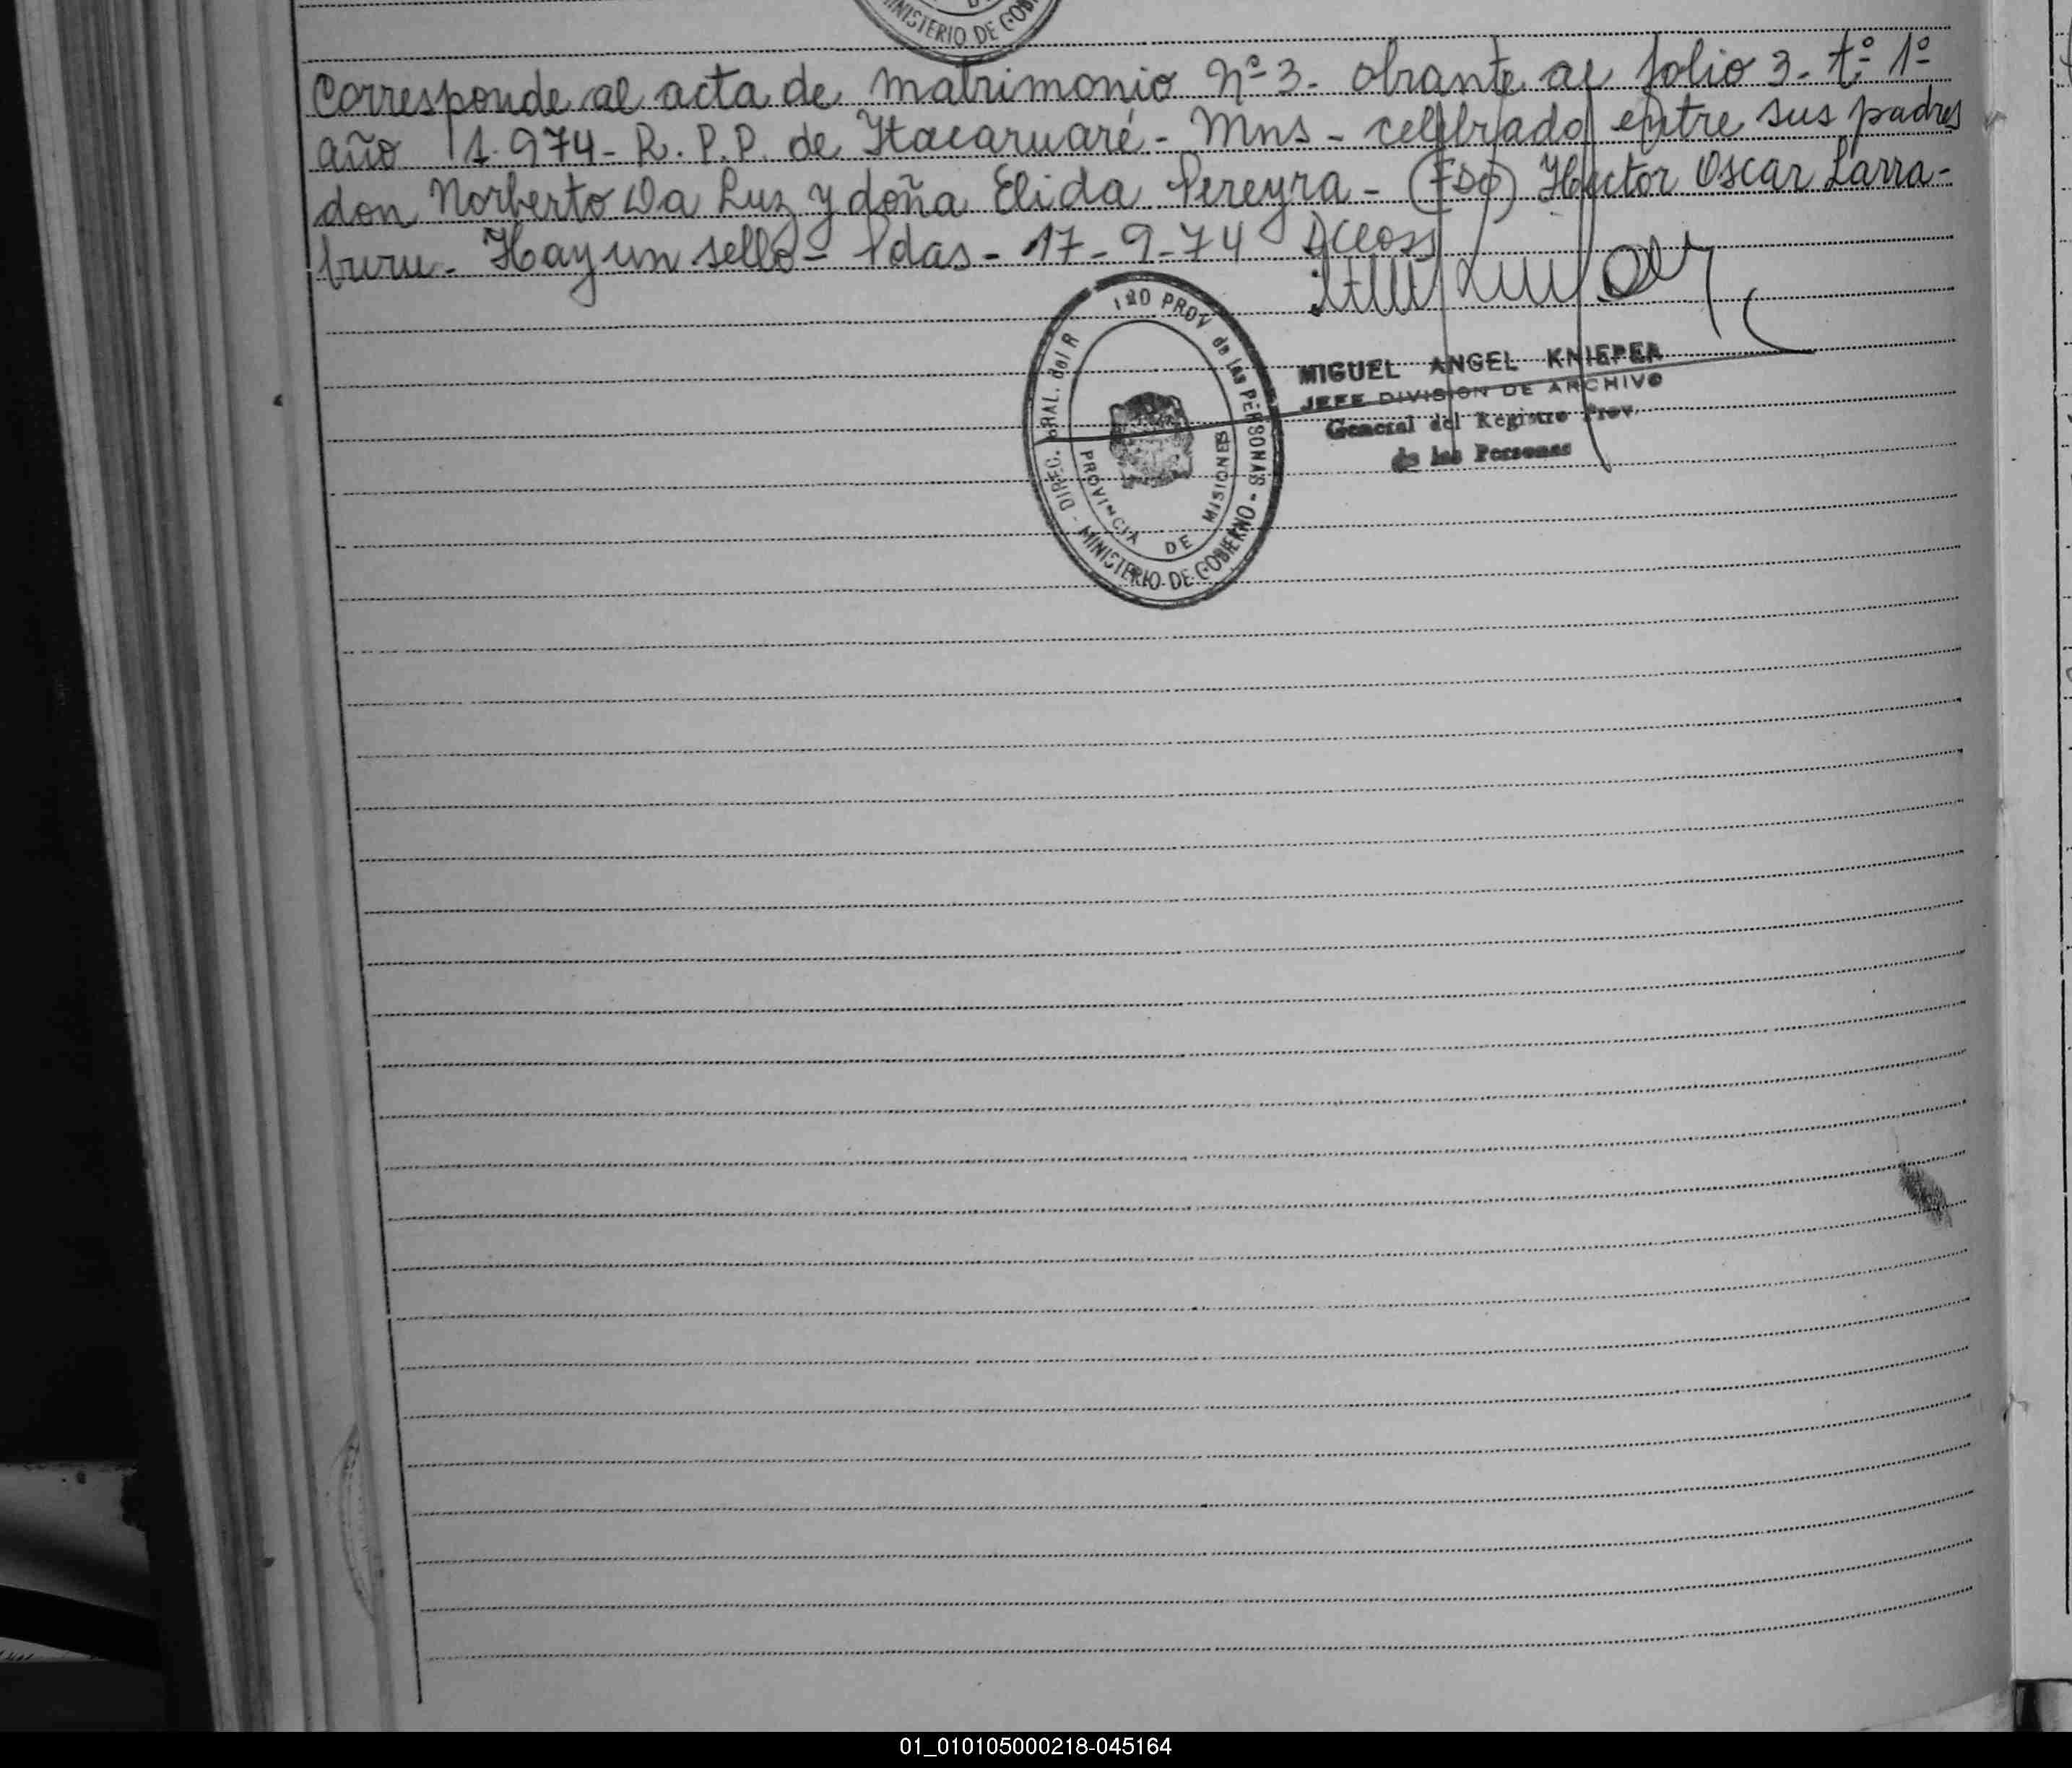 MINISTERIO DE GOB
Corresponde al acta de matrimonio Nº 3- obrante al folio 3- tº 1º
año 1.974- R. P. P. de Itacaruaré- Mns- celebrado entre sus padres
don Norberto Da Luz y doña Elida Pereyra- (Fdo) Hector Oscar Larra-
buru- Hay un sello- Pdas- 17-9-74
DIREC. GRAL. del R PROV de las PERSONAS - MINISTERIO DE GOBIERNO -
PROVINCIA DE MISIONES
MIGUEL ANGEL KNIEPER
JEFE DIVISION DE ARCHIVO
General del Registro Prov.
de las Personas
01_010105000218-045164